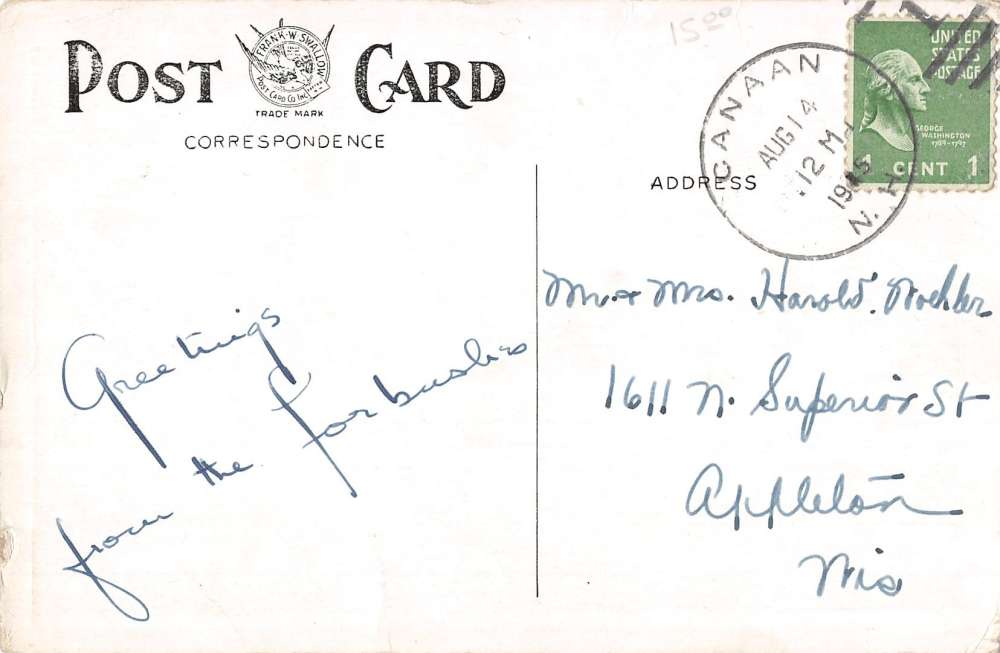 15.00
POST CARD
FRANK·W·SWALLOW
POST CARD CO INC.
TRADE MARK
CORRESPONDENCE
ADDRESS
CANAAN
AUG 14
12 M
1945
N.H.
UNITED
STATES
POSTAGE
GEORGE
WASHINGTON
1789-1797
1 CENT 1
Greetings
from the Forbushes
Mr & Mrs. Harold
1611 N. Superior St
Appleton
Wis